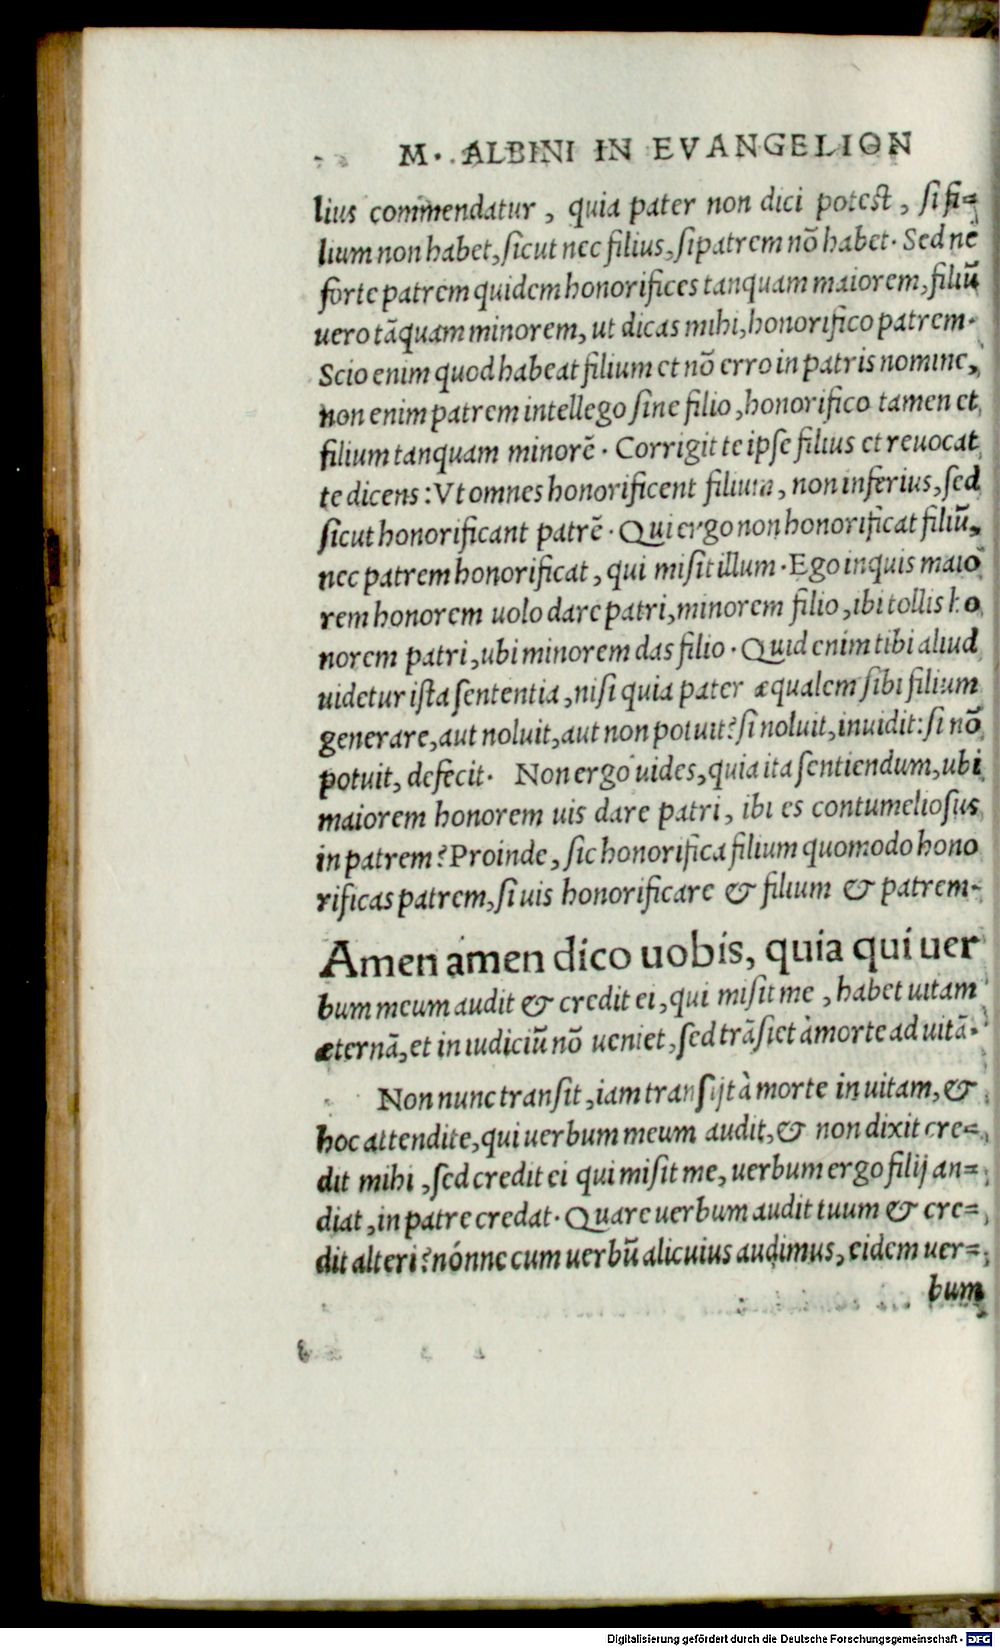 M. ALBINI IN EVANGELION
lius commendatur, quia pater non dici potest, si fi=
lium non habet, sicut nec filius, si patrem nō habet. Sed ne
forte patrem quidem honorifices tanquam maiorem, filiū
uero tāquam minorem, ut dicas mihi, honorifico patrem.
Scio enim quod habeat filium et nō erro in patris nomine,
non enim patrem intellego sine filio, honorifico tamen et
filium tanquam minorē. Corrigit te ipse filius et reuocat
te dicens: Vt omnes honorificent filium, non inferius, sed
sicut honorificant patrē. Qui ergo non honorificat filiū,
nec patrem honorificat, qui misit illum. Ego inquis maio
rem honorem uolo dare patri, minorem filio, ibi tollis ho
norem patri, ubi minorem das filio. Quid enim tibi aliud
uidetur ista sententia, nisi quia pater æqualem sibi filium
generare, aut noluit, aut non potuit? si noluit, inuidit: si nō
potuit, defecit. Non ergo uides, quia ita sentiendum, ubi
maiorem honorem uis dare patri, ibi es contumeliosus
in patrem? Proinde, sic honorifica filium quomodo hono
rificas patrem, si uis honorificare & filium & patrem.
Amen amen dico uobis, quia qui uer
bum meum audit & credit ei, qui misit me, habet uitam
æternā, et in iudiciū nō ueniet, sed trāsiet à morte ad uitā.
Non nunc transit, iam transijt à morte in uitam, &
hoc attendite, qui uerbum meum audit, & non dixit cre=
dit mihi, sed credit ei qui misit me, uerbum ergo filij an=
diat, in patre credat. Quare uerbum audit tuum & cre=
dit alteri? nónne cum uerbū alicuius audimus, eidem uer=
bum
Digitalisierung gefördert durch die Deutsche Forschungsgemeinschaft - DFG